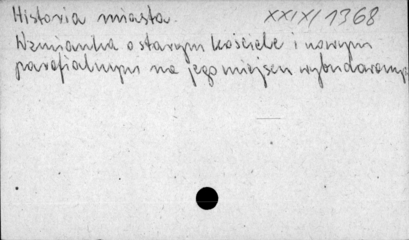 Historia miasta. XXIX/1368
Wzmianka o starym kościele i nowym
parafialnym na jego miejscu wybudowanym